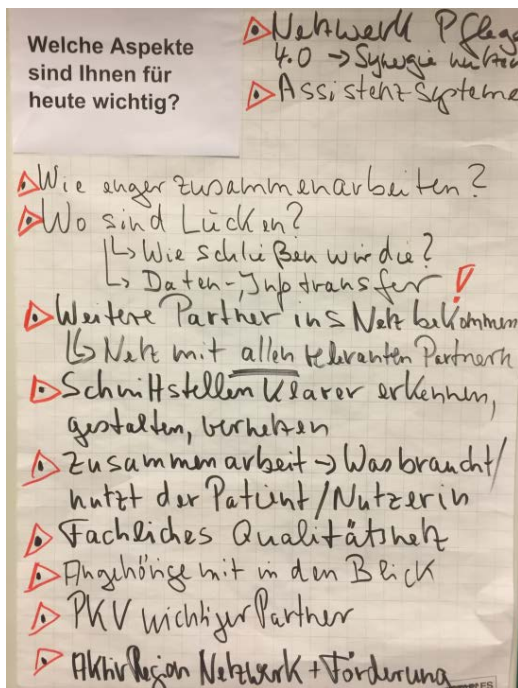 Welche Aspekte
sind Ihnen für
heute wichtig?
Netzwerk Pflege
4.0 → Synergie nutzen
Assistenzsysteme
Wie enger zusammenarbeiten?
Wo sind Lücken?
↳ Wie schließen wir die?
↳ Daten-, Infotransfer !
Weitere Partner ins Netz bekommen
↳ Netz mit allen relevanten Partnern
Schnittstellen klarer erkennen,
gestalten, vernetzen
Zusammenarbeit → Was braucht/
nutzt der Patient/Nutzerin
Fachliches Qualitätsnetz
Angehörige mit in den Blick
PKV wichtiger Partner
AktivRegion Netzwerk + Förderung